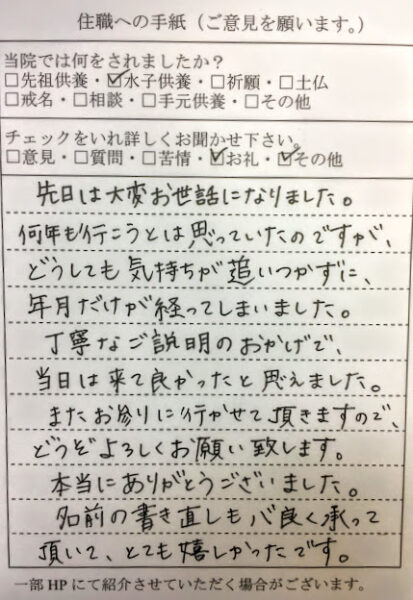 住職への手紙（ご意見を願います。）
当院では何をされましたか？
□先祖供養・☑水子供養・□祈願・□土仏
□戒名・□相談・□手元供養・□その他
チェックをいれ詳しくお聞かせ下さい。
□意見・□質問・□苦情・☑お礼・☑その他
先日は大変お世話になりました。
何年も行こうとは思っていたのですが、
どうしても気持ちが追いつかずに、
年月だけが経ってしまいました。
丁寧なご説明のおかげで、
当日は来て良かったと思えました。
またお参りに行かせて頂きますので、
どうぞよろしくお願い致します。
本当にありがとうございました。
名前の書き直しも心良く承って
頂いて、とても嬉しかったです。
一部HPにて紹介させていただく場合がございます。